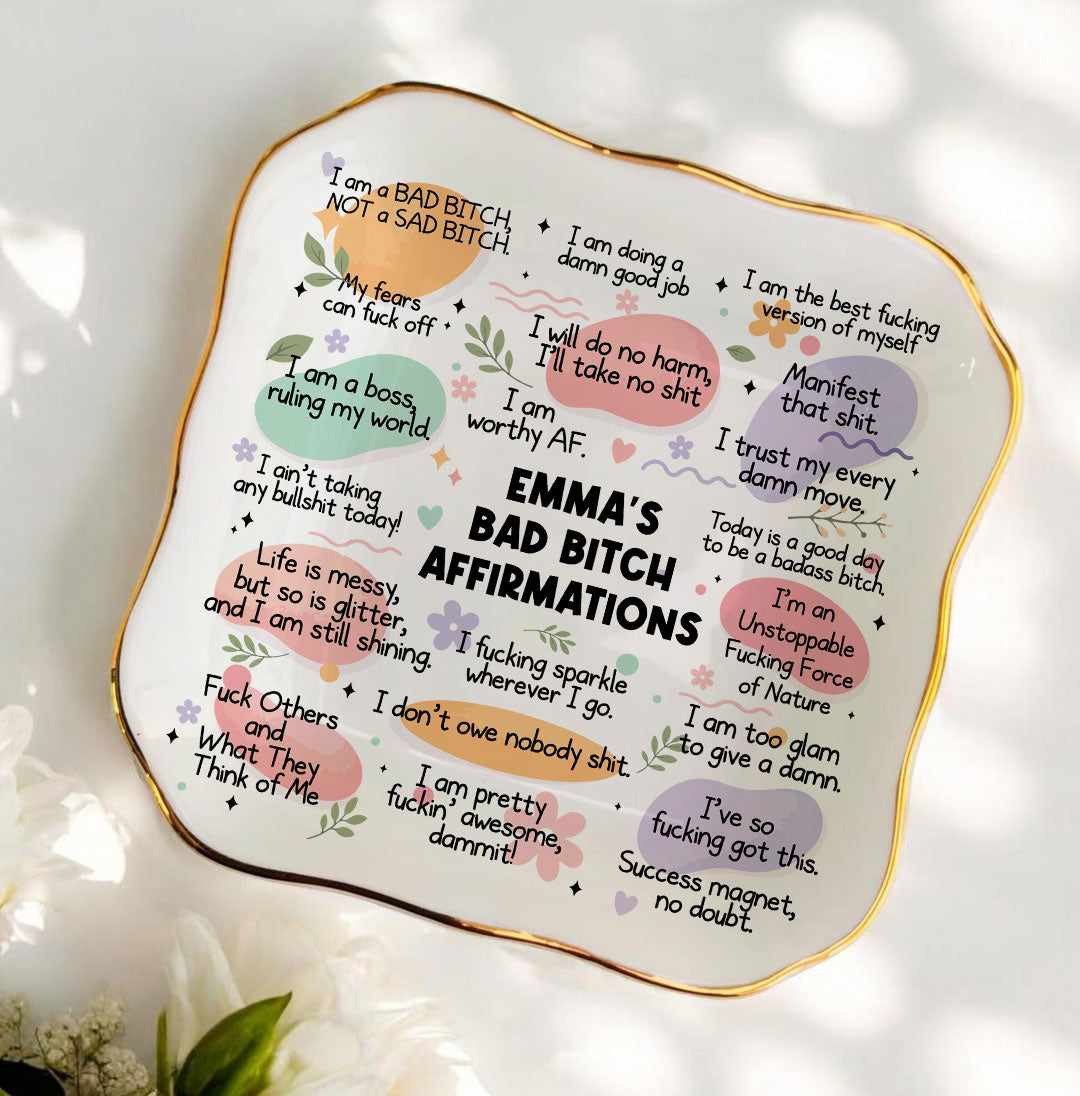 I am a BAD BITCH,
NOT a SAD BITCH.
I am doing a
damn good job
I am the best fucking
version of myself
My fears
can fuck off
I will do no harm,
I'll take no shit
Manifest
that shit.
I am a boss,
ruling my world.
I am
worthy AF.
I trust my every
damn move,
I ain't taking
any bullshit today!
EMMA'S
BAD BITCH
AFFIRMATIONS
Today is a good day
to be a badass bitch.
Life is messy,
but so is glitter,
and I am still shining.
I'm an
Unstoppable
Fucking Force
of Nature
I fucking sparkle
wherever I go.
Fuck Others
and
What They
Think of Me
I don't owe nobody shit.
I am too glam
to give a damn.
I am pretty
fuckin' awesome,
dammit!
I've so
fucking got this.
Success magnet,
no doubt.